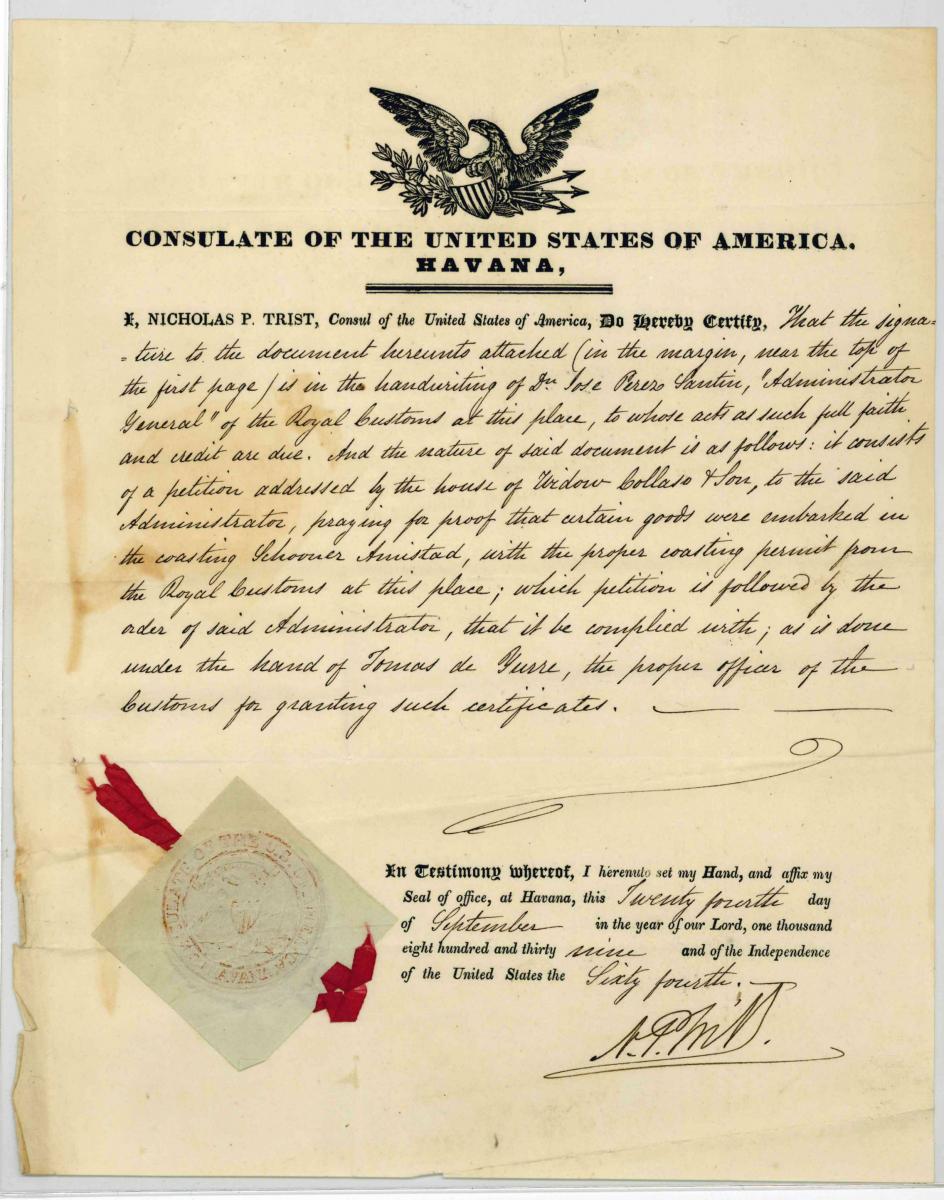 CONSULATE OF THE UNITED STATES OF AMERICA.
HAVANA,
I, NICHOLAS P. TRIST, Consul of the United States of America, Do Hereby Certify, That the signa=
=ture to the document hereunto attached (in the margin, near the top of
the first page) is in the handwriting of Dn Jose Perez Santin, "Administrator
General" of the Royal Customs at this place, to whose acts as such full faith
and credit are due. And the nature of said document is as follows: it consists
of a petition addressed by the house of Widow Collaso & Son, to the said
Administrator, praying for proof that certain goods were embarked in
the coasting Schooner Amistad, with the proper coasting permit from
the Royal Customs at this place; which petition is followed by the
order of said Administrator, that it be complied with; as is done
under the hand of Tomas de Yurre, the proper officer of the
Customs for granting such certificates.
In Testimony whereof, I hereunto set my Hand, and affix my
Seal of office, at Havana, this Twenty fourth day
of September in the year of our Lord, one thousand
eight hundred and thirty nine and of the Independence
of the United States the Sixty fourth.
N. P. Trist.